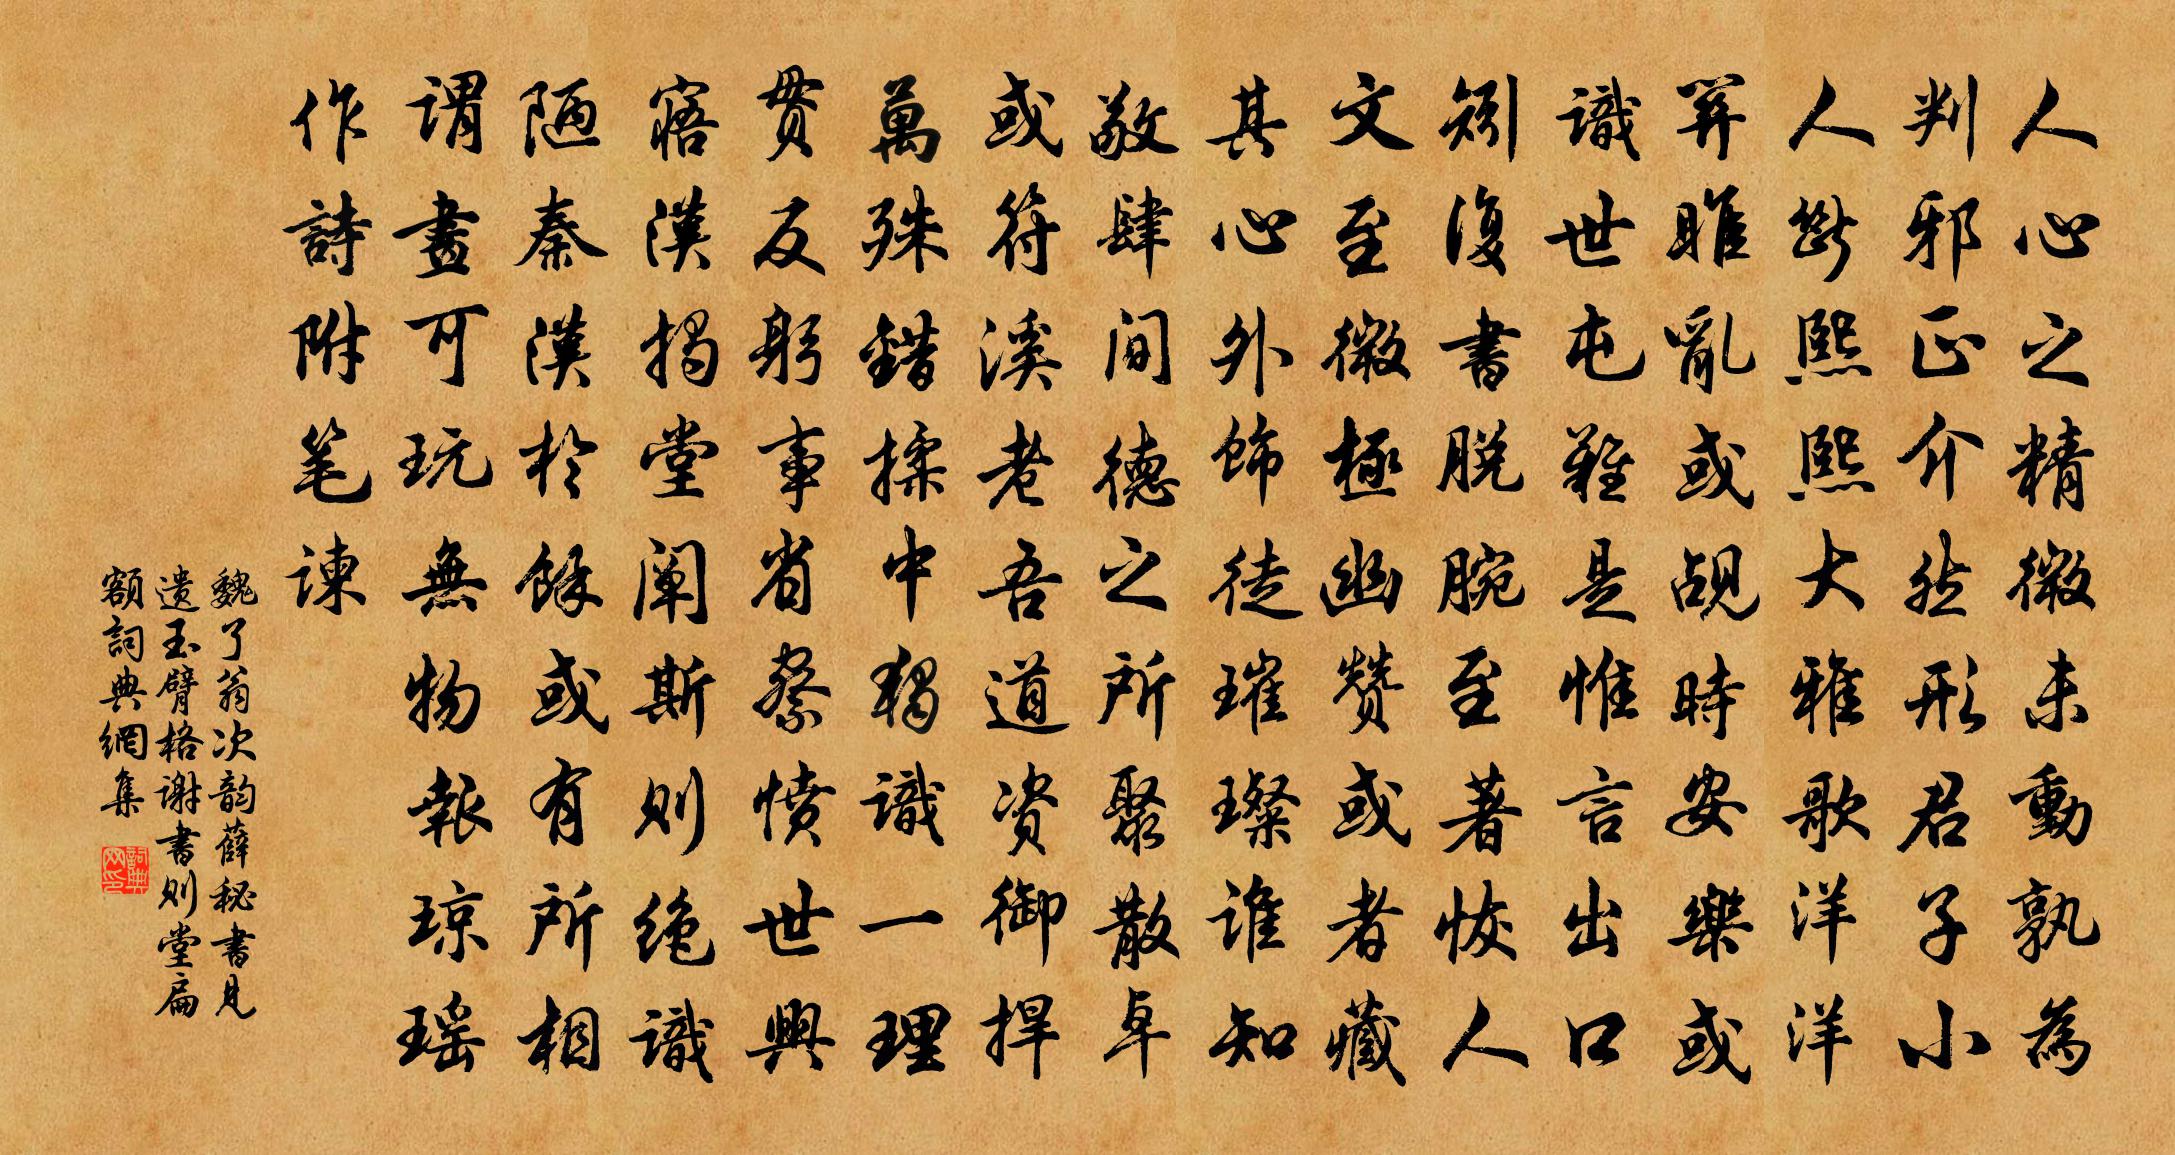 人心之精微未動孰為
判邪正介然形君子小
人斷熙熙大雅歌洋洋
羿睢亂或觇時安樂或
識世屯難是惟言出口
矧復書脱腕至著恢人
文至微極幽赞或者藏
其心外飾徒璀璨谁知
敬肆间德之所聚散卓
或符溪老吾道资御捍
萬殊錯揉中獨識一理
贯反躬事省察愤世興
寤漢揭堂阐斯则绝識
陋秦漢於餘或有所相
謂畫可玩無物報琼瑶
作詩附笔谏
魏了翁次韵薛秘書見
遗玉臂格谢書则堂扁
額詞典網集
詞典网印